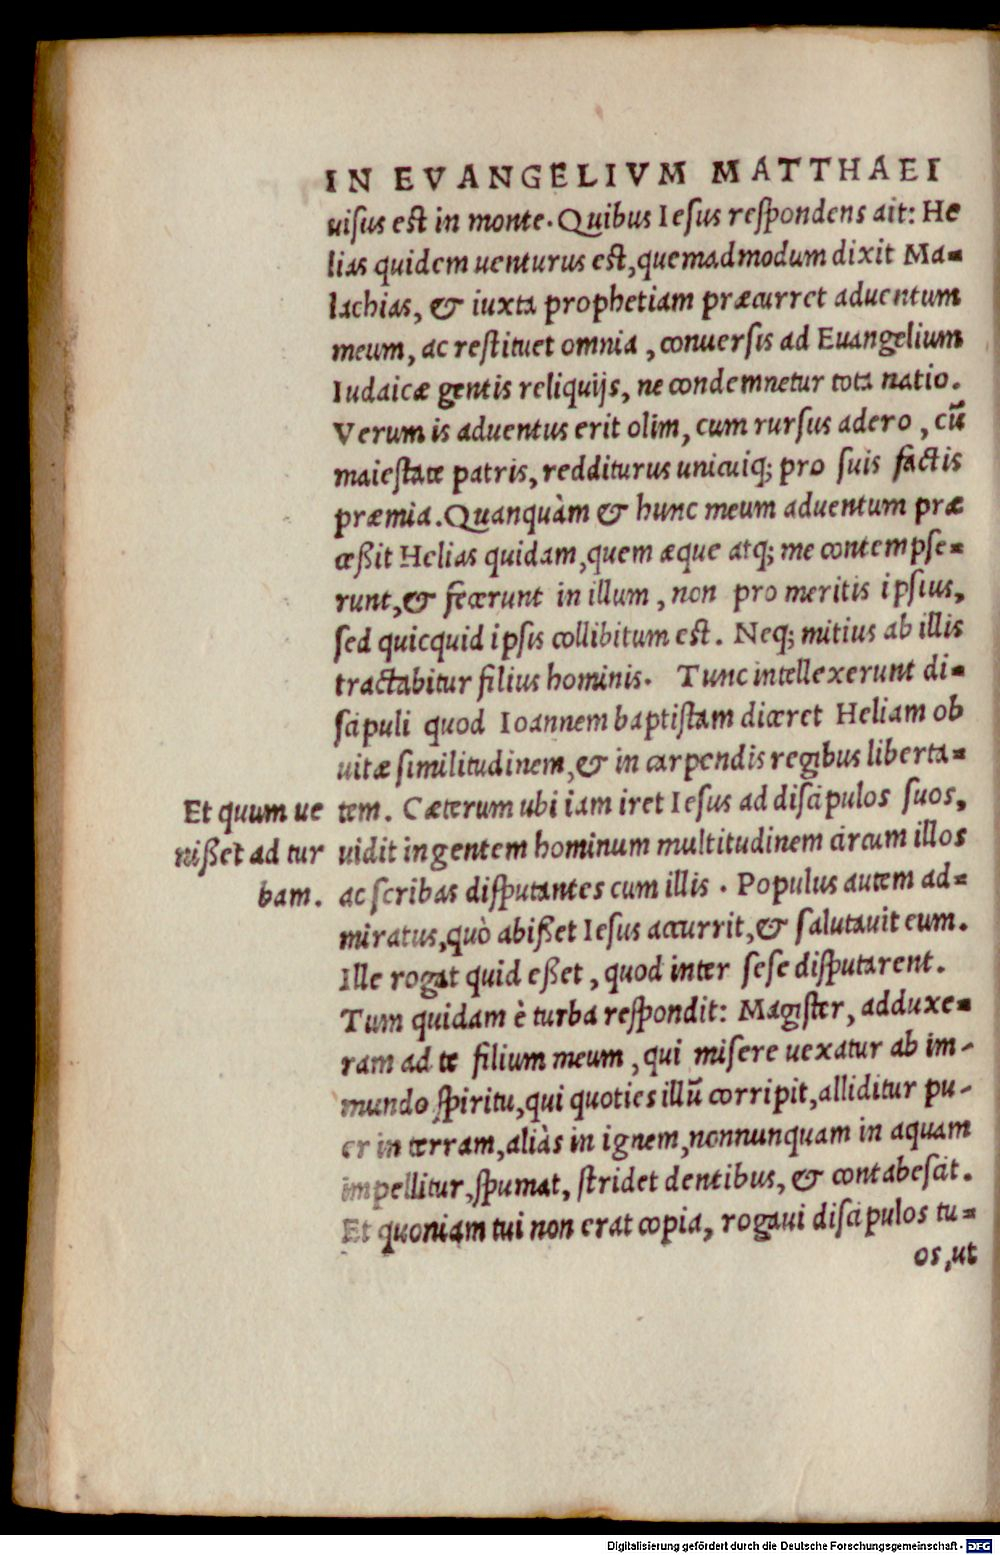 IN EVANGELIVM MATTHAEI
uisus est in monte. Quibus Iesus respondens ait: He
lias quidem uenturus est, quemadmodum dixit Ma-
lachias, & iuxta prophetiam præcurret aduentum
meum, ac restituet omnia, conuersis ad Euangelium
Iudaicæ gentis reliquijs, ne condemnetur tota natio.
Verum is aduentus erit olim, cum rursus adero, cū
maiestate patris, redditurus unicuiq; pro suis factis
præmia. Quanquàm & hunc meum aduentum præ
ceßit Helias quidam, quem æque atq; me contempse-
runt, & fecerunt in illum, non pro meritis ipsius,
sed quicquid ipsis collibitum est. Neq; mitius ab illis
tractabitur filius hominis. Tunc intellexerunt di-
scipuli quod Ioannem baptistam diceret Heliam ob
uitæ similitudinem, & in carpendis regibus liberta-
Et quum ue tem. Cæterum ubi iam iret Iesus ad discipulos suos,
nißet ad tur uidit ingentem hominum multitudinem circum illos
bam. ac scribas disputantes cum illis. Populus autem ad-
miratus, quò abißet Iesus accurrit, & salutauit eum.
Ille rogat quid eßet, quod inter sese disputarent.
Tum quidam è turba respondit: Magister, adduxe-
ram ad te filium meum, qui misere uexatur ab im-
mundo spiritu, qui quoties illū corripit, alliditur pu-
er in terram, aliàs in ignem, nonnunquam in aquam
impellitur, spumat, stridet dentibus, & contabescit.
Et quoniam tui non erat copia, rogaui discipulos tu-
os, ut
Digitalisierung gefördert durch die Deutsche Forschungsgemeinschaft - DFG